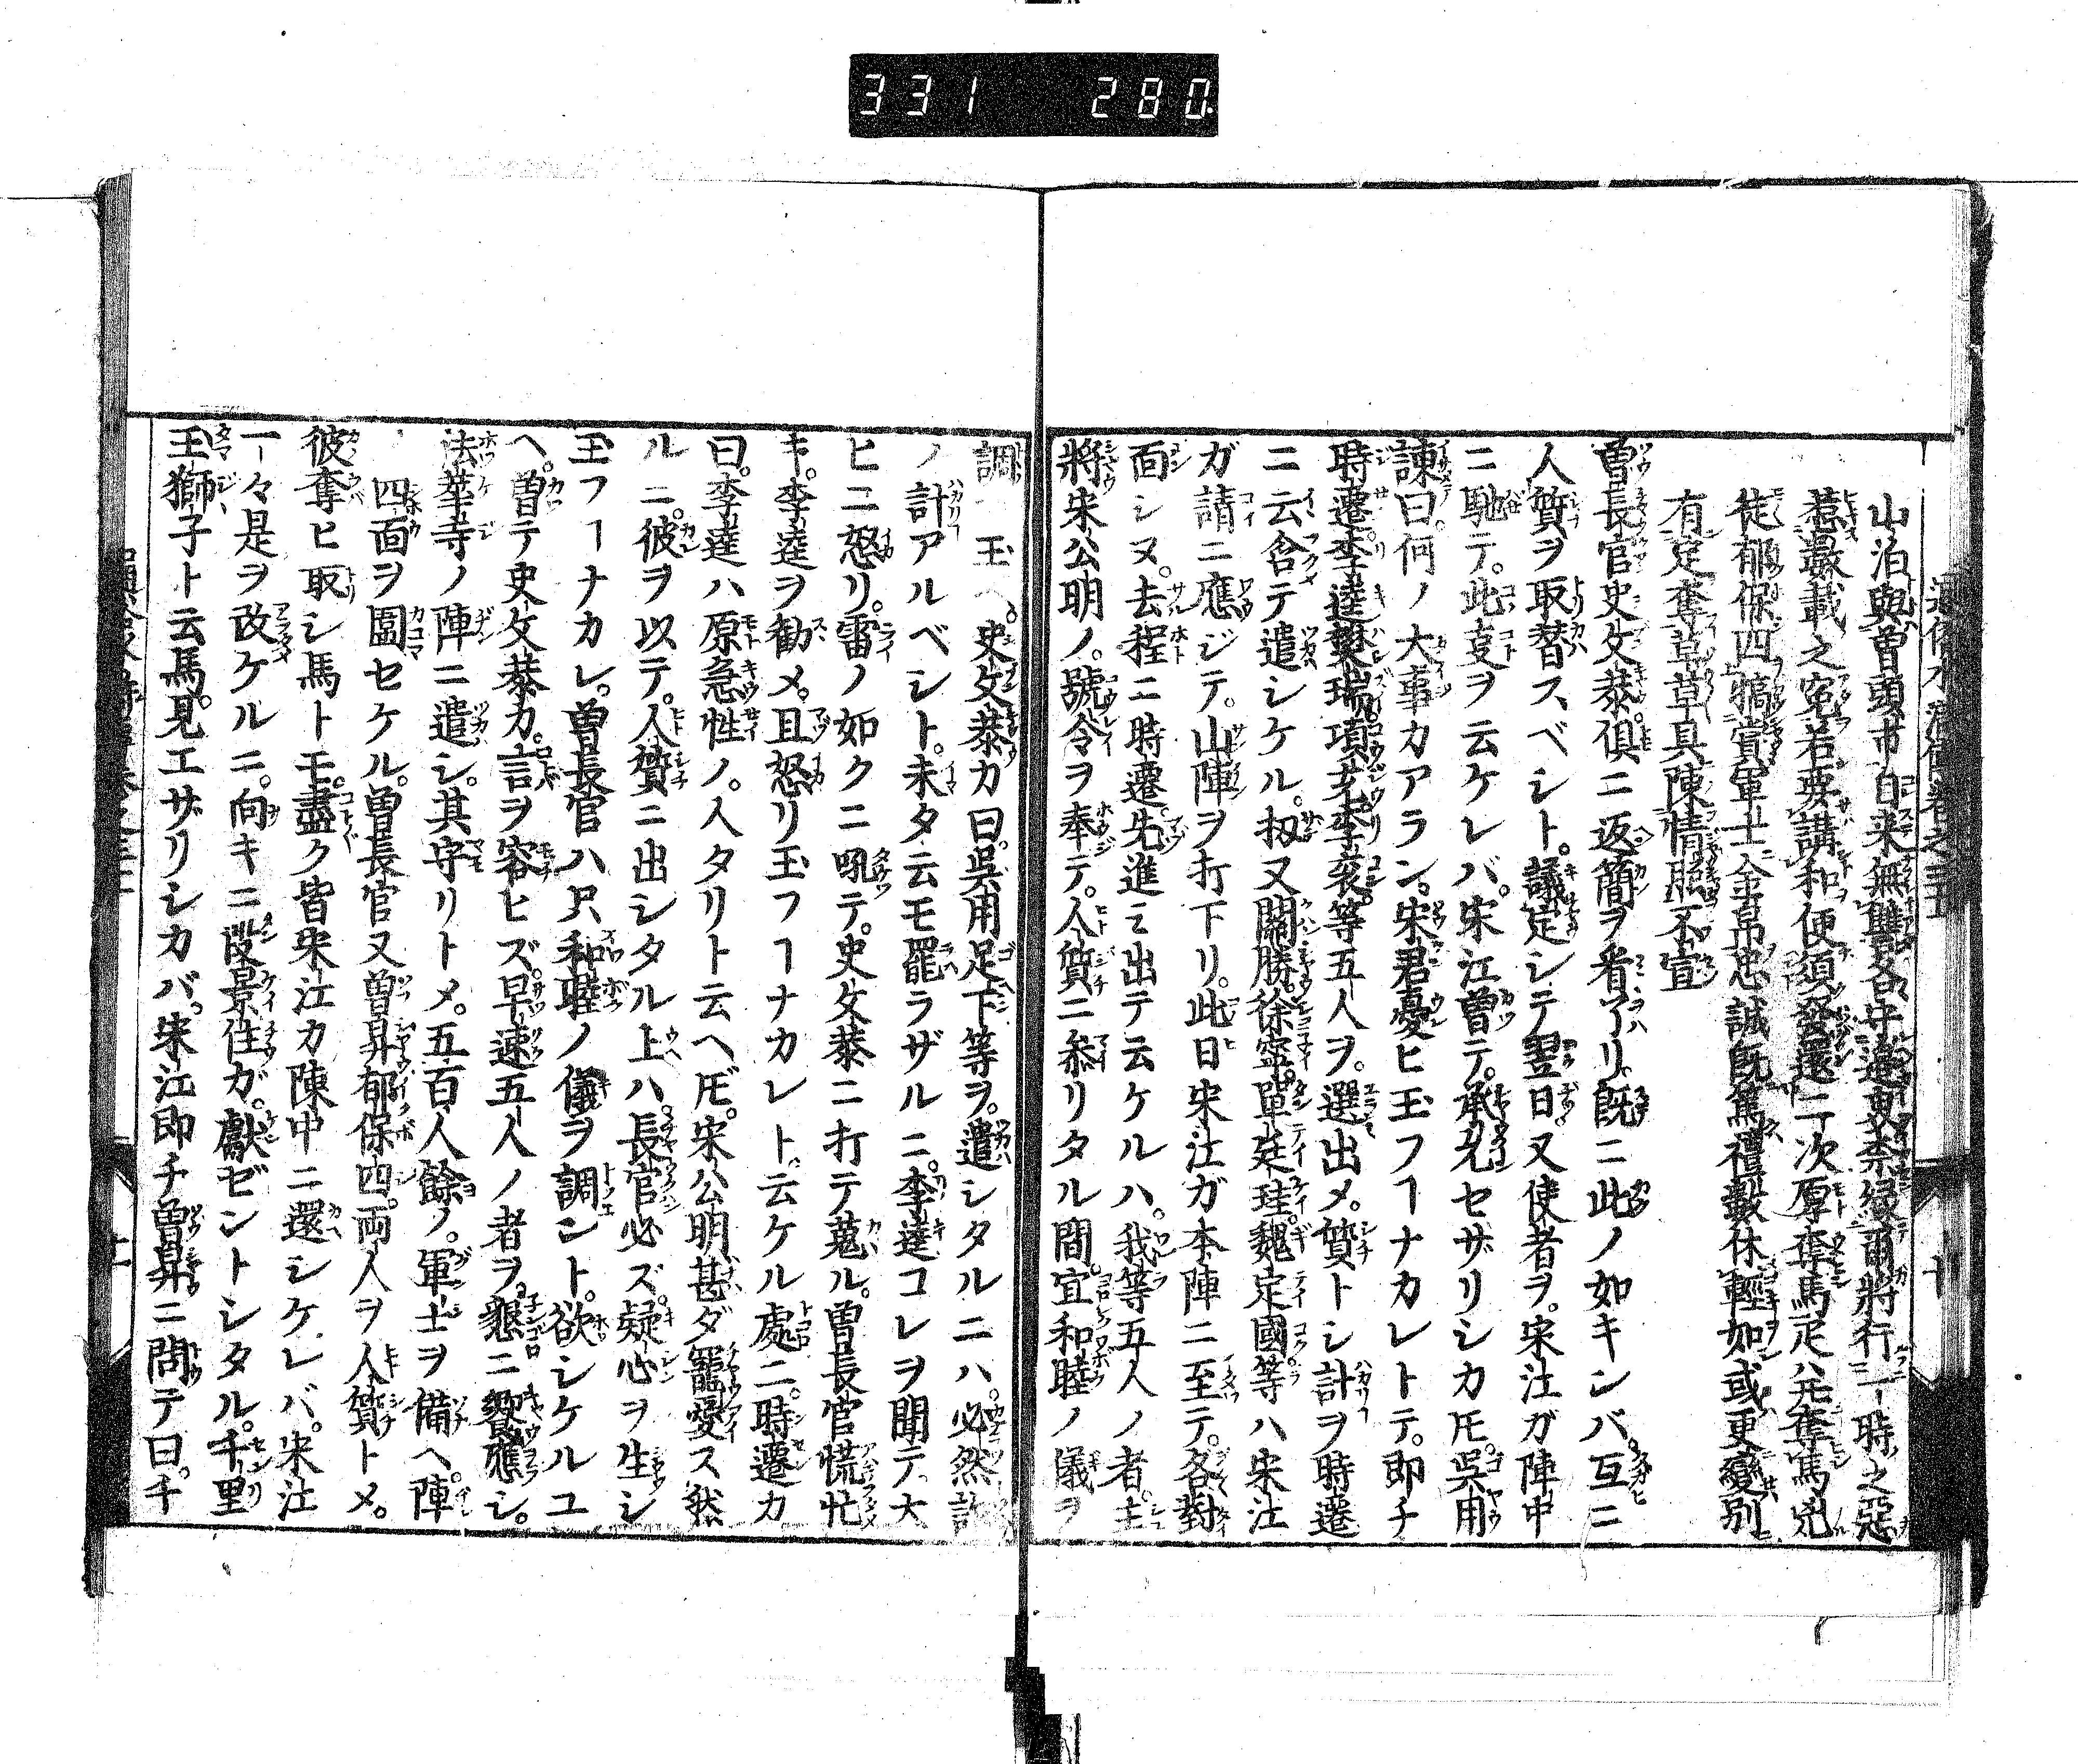 331 280.
山泊與曽頭市自来無讐各守邉界奈縁爾將行一時之惡
惹數載之寃若要講和便須發還二次原奪馬疋并奪馬兇
徒郁保四犒賞軍士金帛忠誠既篤禮數休輕如或更變別
有定奪草草具陳情照不宣
曽長官史文恭倶ニ返簡ヲ看了リ既ニ此ノ如キンバ互ニ
人質ヲ取替スベシト。議定シテ翌日又使者ヲ。宋江ガ陣中
ニ馳テ。此叓ヲ云ケレバ。宋江曽テ。承允セザリシカ𪜈。呉用
諫曰。何ノ大事カアラン。宋君憂ヒ玉フヿナカレトテ。即チ
時遷。李逵樊瑞。項充李袞。等五人ヲ。選出メ。質トシ計ヲ時遷
ニ云含テ遣シケル。扨又關勝。徐寧。單廷珪。魏定國等ハ宋江
ガ請ニ應ジテ。山陣ヲ打下リ。此日宋江ガ本陣ニ至テ。各對
面シヌ。去程ニ時遷。先進ミ出テ云ケルハ。我等五人ノ者。主
將宋公明ノ。號令ヲ奉テ。人質ニ叅リタル間。宜和睦ノ儀ヲ
調玉ヘ。史文恭カ曰。呉用足下等ヲ。遣シタルニハ。必然詐
ノ計アルベシト。未タ云モ罷ラザルニ。李逵コレヲ聞テ大
ヒニ怒リ。雷ノ如クニ吼テ。史文恭ニ打テ蒐ル。曽長官慌忙
キ。李逵ヲ勸メ。且怒リ玉フヿナカレト。云ケル處ニ。時遷カ
曰。李逵ハ原急性ノ。人タリト云ヘ𪜈。宋公明甚ダ寵愛ス然
ルニ。彼ヲ以テ。人質ニ出シタル上ハ。長官必ズ疑心ヲ生シ
玉フヿナカレ。曽長官ハ只和睦ノ儀ヲ調ント。欲シケルユ
ヘ。曽テ史文恭カ。言ヲ容ヒズ。早速五人ノ者ヲ。懇ニ饗應シ。
法華寺ノ陣ニ遣シ。其守リトメ。五百人餘ノ。軍士ヲ備ヘ。陣
四面ヲ圍セケル。曽長官又曽昇郁保四。両人ヲ人質トメ。
彼奪ヒ取シ馬トモ。盡ク皆宋江カ陳中ニ還シケレバ。宋江
一々是ヲ改ケルニ。向キニ段景住ガ。獻ゼントシタル。千里
玉獅子ト云馬。見エザリシカバ。宋江即チ曽昇ニ問テ曰。千